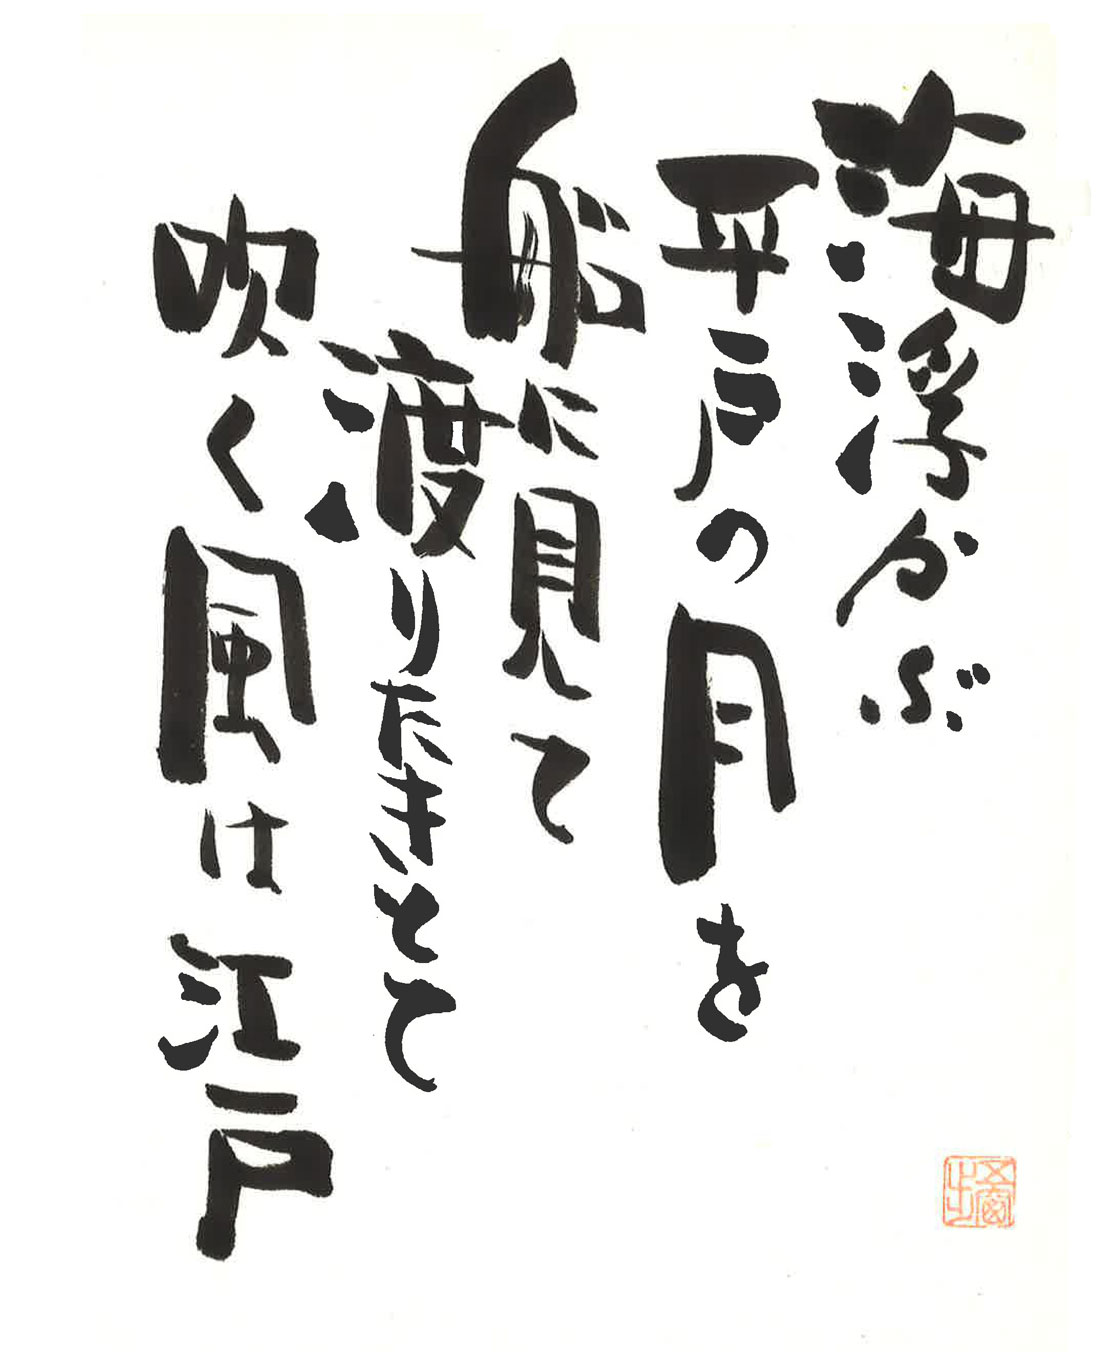 海浮かぶ
平戸の月を
船に見て
渡りたきとて
吹く風は江戸